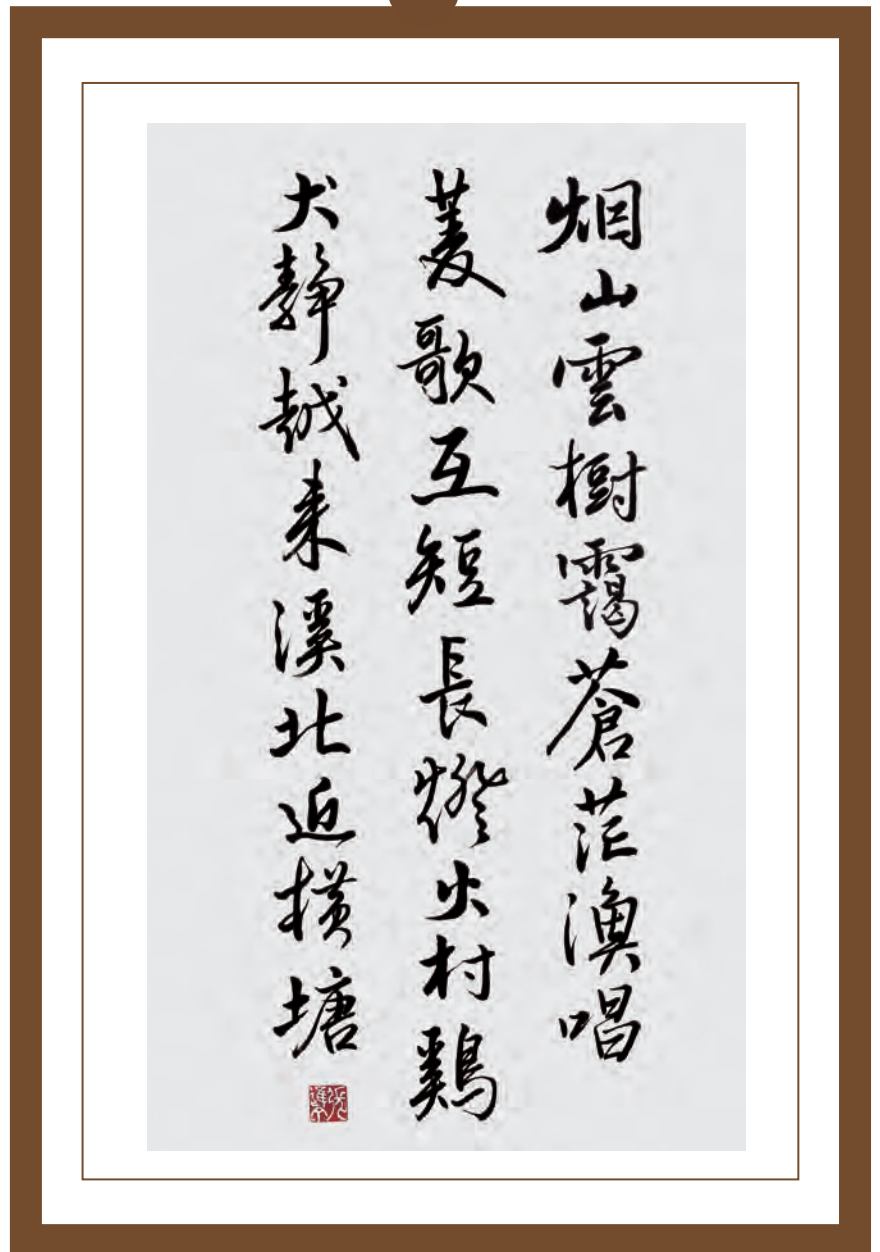 烟山雲樹靄蒼茫漁唱
菱歌互短長燈火村鷄
犬静越来溪北近横塘